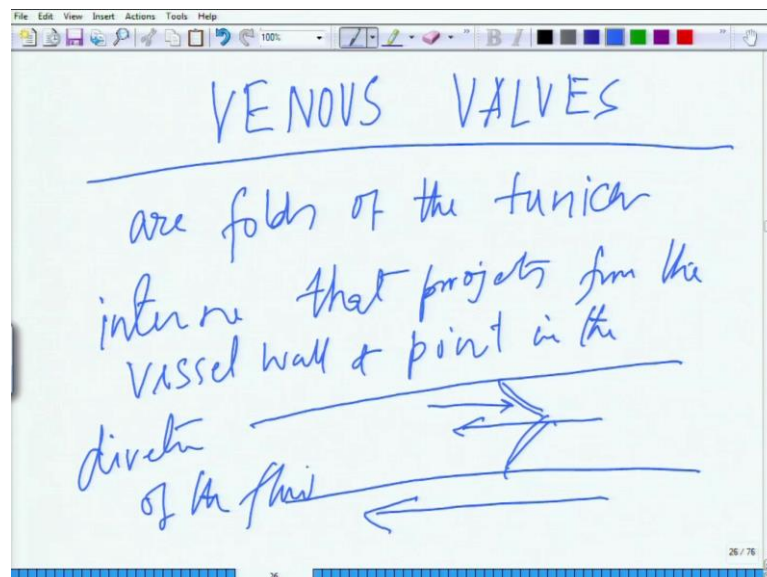 File Edit View Insert Actions Tools Help
100%
VENOUS VALVES
are folds of the tunica
interne that projets from the
vessel wall & point in the
direction
of the fluid
26 / 76
26